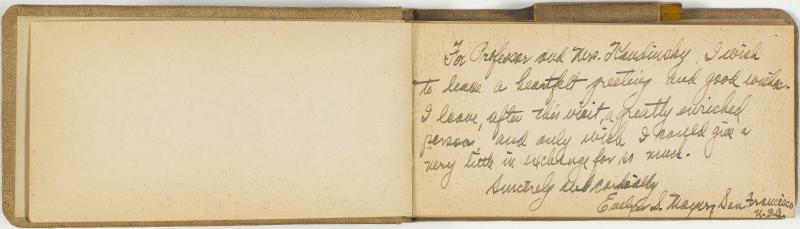 For Professor and Mrs. Kandinsky I wish
to leave a heartfelt greeting and good wishes.
I leave, after this visit, a greatly enriched
person, and only wish I could give a
very little in exchange for so much.
Sincerely and cordially
Evelyn S. Mayer, San Francisco